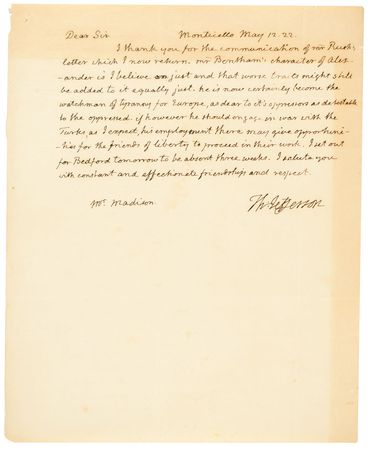 Dear Sir Monticello May 12. 22.
I thank you for the communication of mr Rush's
letter which I now return. mr Bentham's character of Alex-
ander is I believe just and that worse traits might still
be added to it equally just. he is now certainly become the
watchman of tyranny for Europe, as dear to it's oppressors as detestable
to the oppressed. if however he should engage in war with the
Turks, as I expect, his employment there may give opportuni-
-ties for the friends of liberty to proceed in their work. I set out
for Bedford tomorrow to be absent three weeks. I salute you
with constant and affectionate friendship and respect.
Mr. Madison.
Th: Jefferson